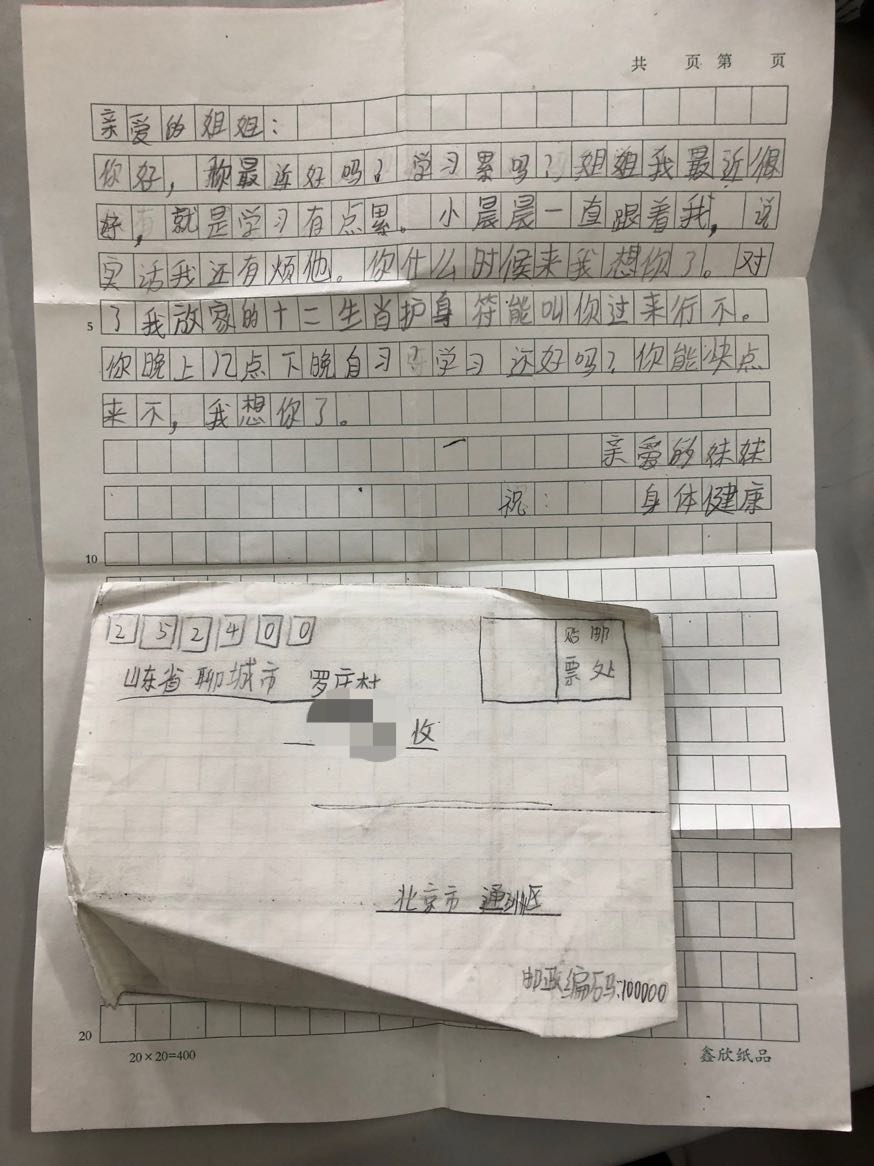 共 页 第 页
亲爱的姐姐：
你好，你最近好吗？学习累吗？姐姐我最近很
好，就是学习有点累。小晨晨一直跟着我，说
实话我还有烦他。你什么时候来我想你了。对
5 了我放家的十二生肖护身符能叫你过来行不。
你晚上几点下晚自习？学习还好吗？你能快点
来不，我想你了。
亲爱的妹妹
祝： 身体健康
10
252400
贴邮
票处
山东省 聊城市 罗庄村
收
北京市 通州区
邮政编码：100000
20
20×20=400 鑫欣纸品